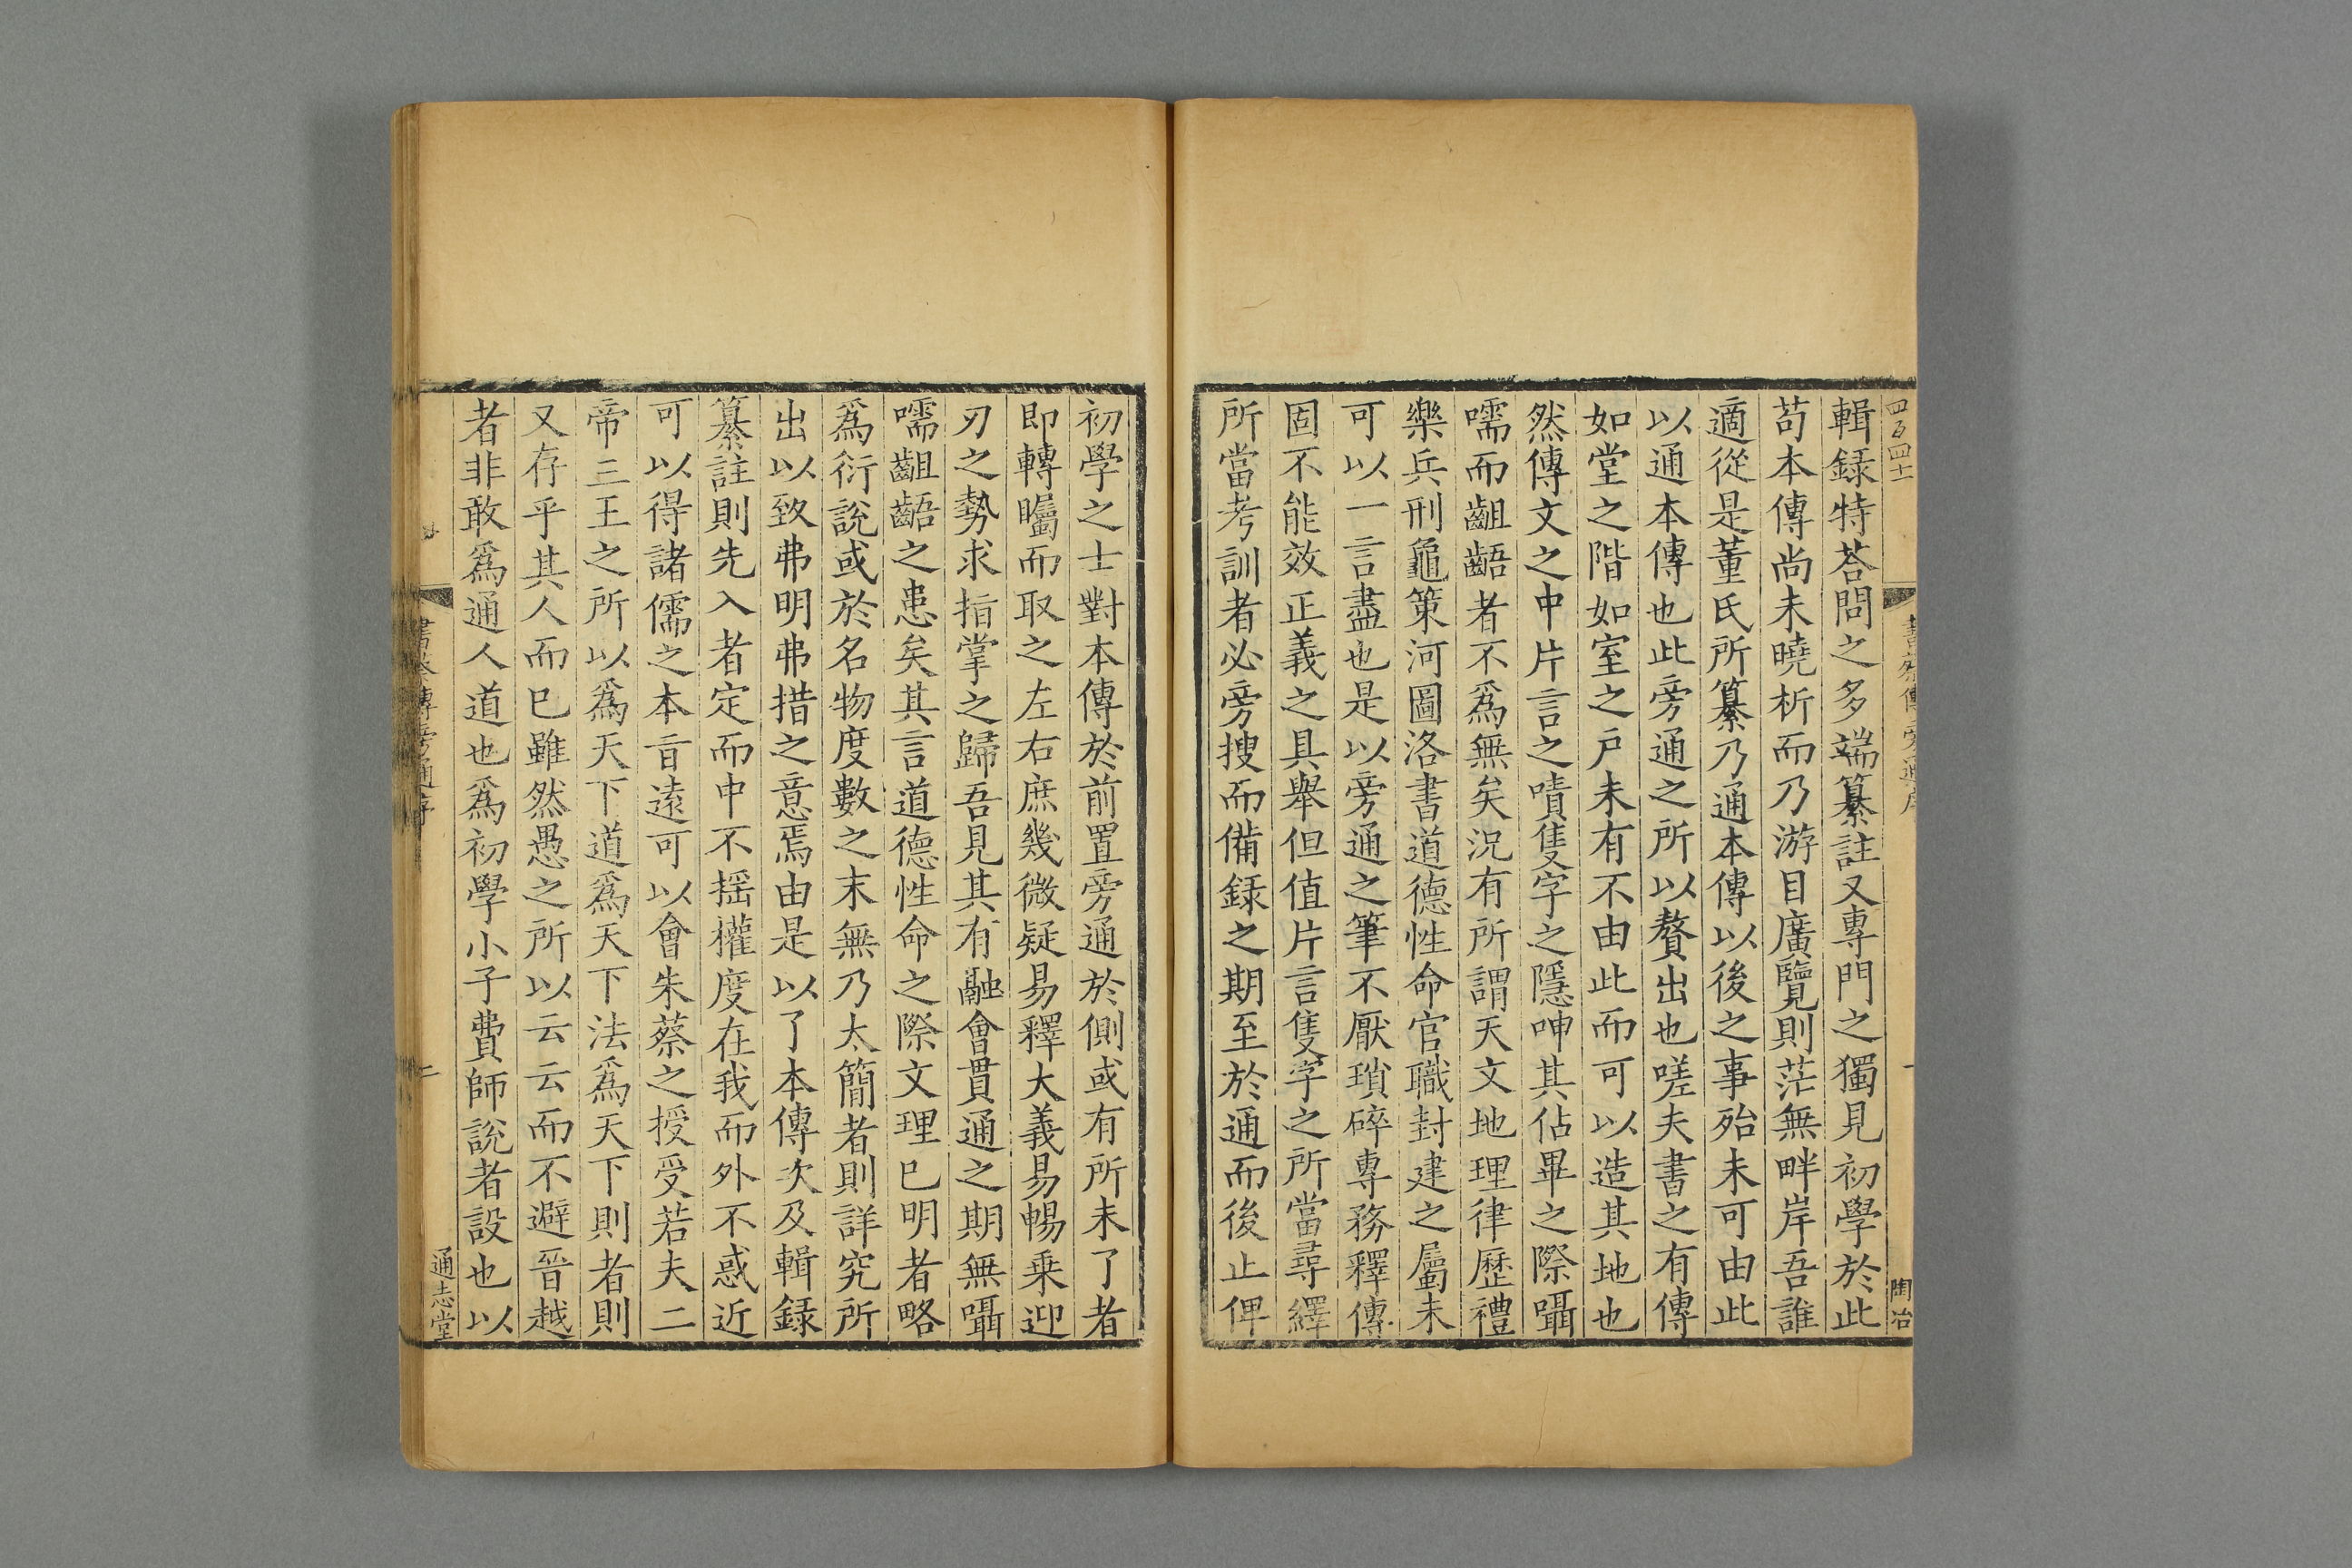 四百四十二
書蔡傳旁通序
一
陶冶
輯録特荅問之多端纂註又專門之獨見初學於此
苟本傳尚未曉析而乃游目廣覽則茫無畔岸吾誰
適從是董氏所纂乃通本傳以後之事殆未可由此
以通本傳也此旁通之所以贅出也嗟夫書之有傳
如堂之階如室之戶未有不由此而可以造其地也
然傳文之中片言之嘖隻字之隱呻其佔畢之際囁
嚅而齟齬者不爲無矣況有所謂天文地理律歷禮
樂兵刑龜策河圖洛書道德性命官職封建之屬未
可以一言盡也是以旁通之筆不厭瑣碎專務釋傳
固不能效正義之具舉但值片言隻字之所當尋繹
所當考訓者必旁搜而備録之期至於通而後止俾
初學之士對本傳於前置旁通於側或有所未了者
即轉矚而取之左右庶幾微疑易釋大義易暢乗迎
刃之勢求指掌之歸吾見其有融會貫通之期無囁
嚅齟齬之患矣其言道德性命之際文理已明者略
爲衍說或於名物度數之末無乃太簡者則詳究所
出以致弗明弗措之意焉由是以了本傳次及輯録
纂註則先入者定而中不揺權度在我而外不惑近
可以得諸儒之本旨遠可以會朱蔡之授受若夫二
帝三王之所以爲天下道爲天下法爲天下則者則
又存乎其人而已雖然愚之所以云云而不避晉越
者非敢爲通人道也爲初學小子費師說者設也以
書蔡傳旁通序
二
通志堂